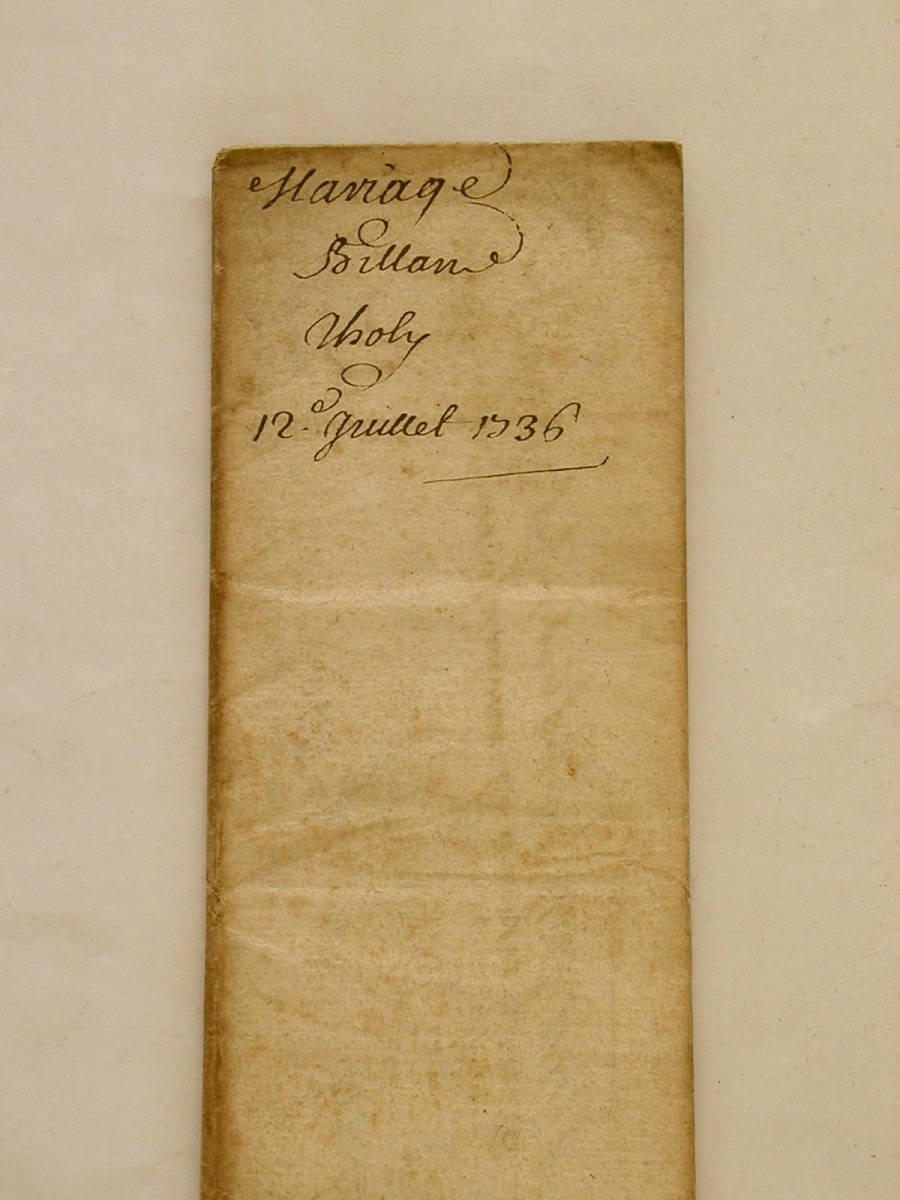 Mariage
Billan
Tholy
12.e Juillet 1736